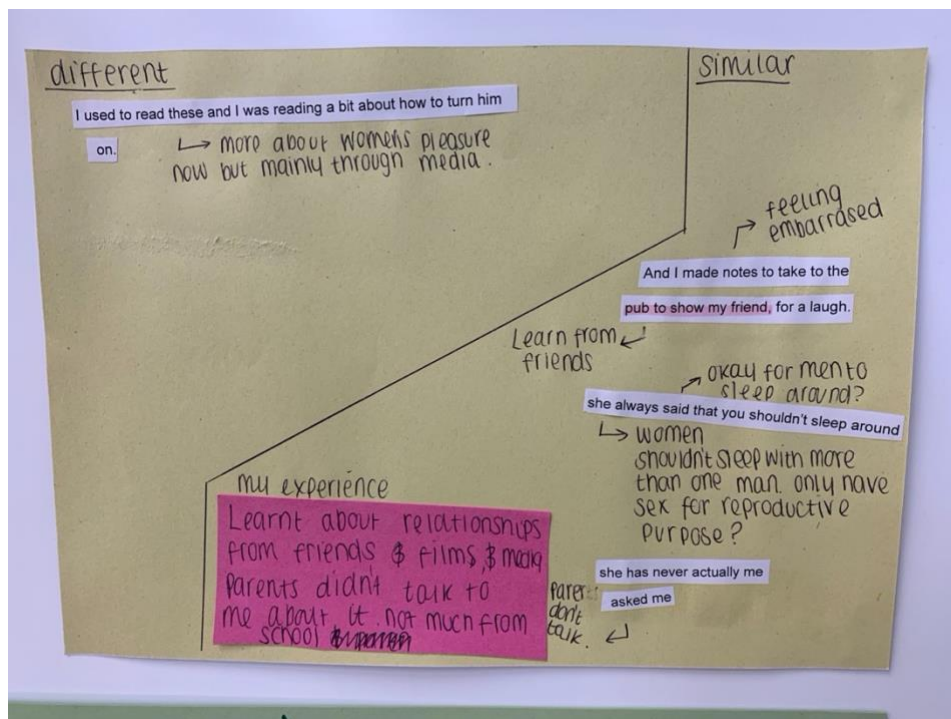 different
I used to read these and I was reading a bit about how to turn him
on.
↳ more about womens pleasure
now but mainly through media.
similar
feeling
embarrased
And I made notes to take to the
pub to show my friend, for a laugh.
Learn from
friends
okay for men to
sleep around?
she always said that you shouldn't sleep around
↳ women
shouldn't sleep with more
than one man. only have
sex for reproductive
purpose?
she has never actually me
asked me
parents
don't
talk.
my experience
Learnt about relationships
from friends & films & media
Parents didn't talk to
me about it not much from
school